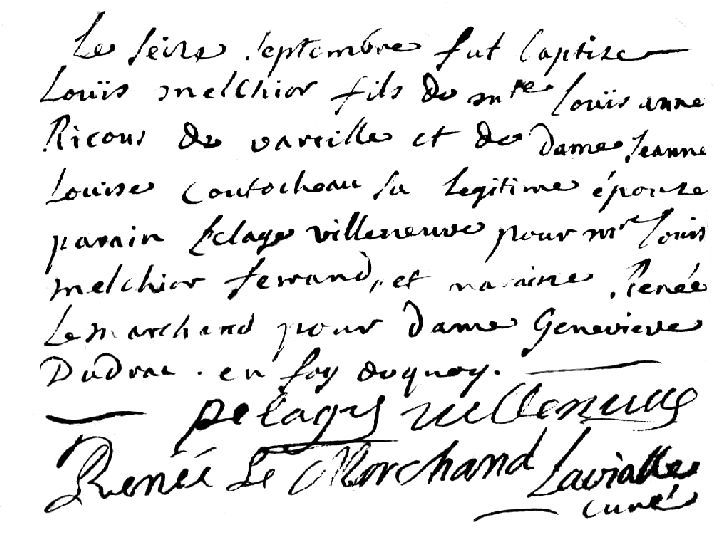 Le seize septembre fut baptize
Louïs melchior fils de mtre Louïs anne
Ricous de vareille et de Dame Jeanne
Louise Coutocheau sa legitime épouze
parain Pelage villeneuve pour mre Louis
melchior ferrand, et maraine Renée
Le marchand pour Dame Genevieve
Dudrac . en foy dequoy .
pelagie villeneuve
Renée Le Marchand Lavialle
curé